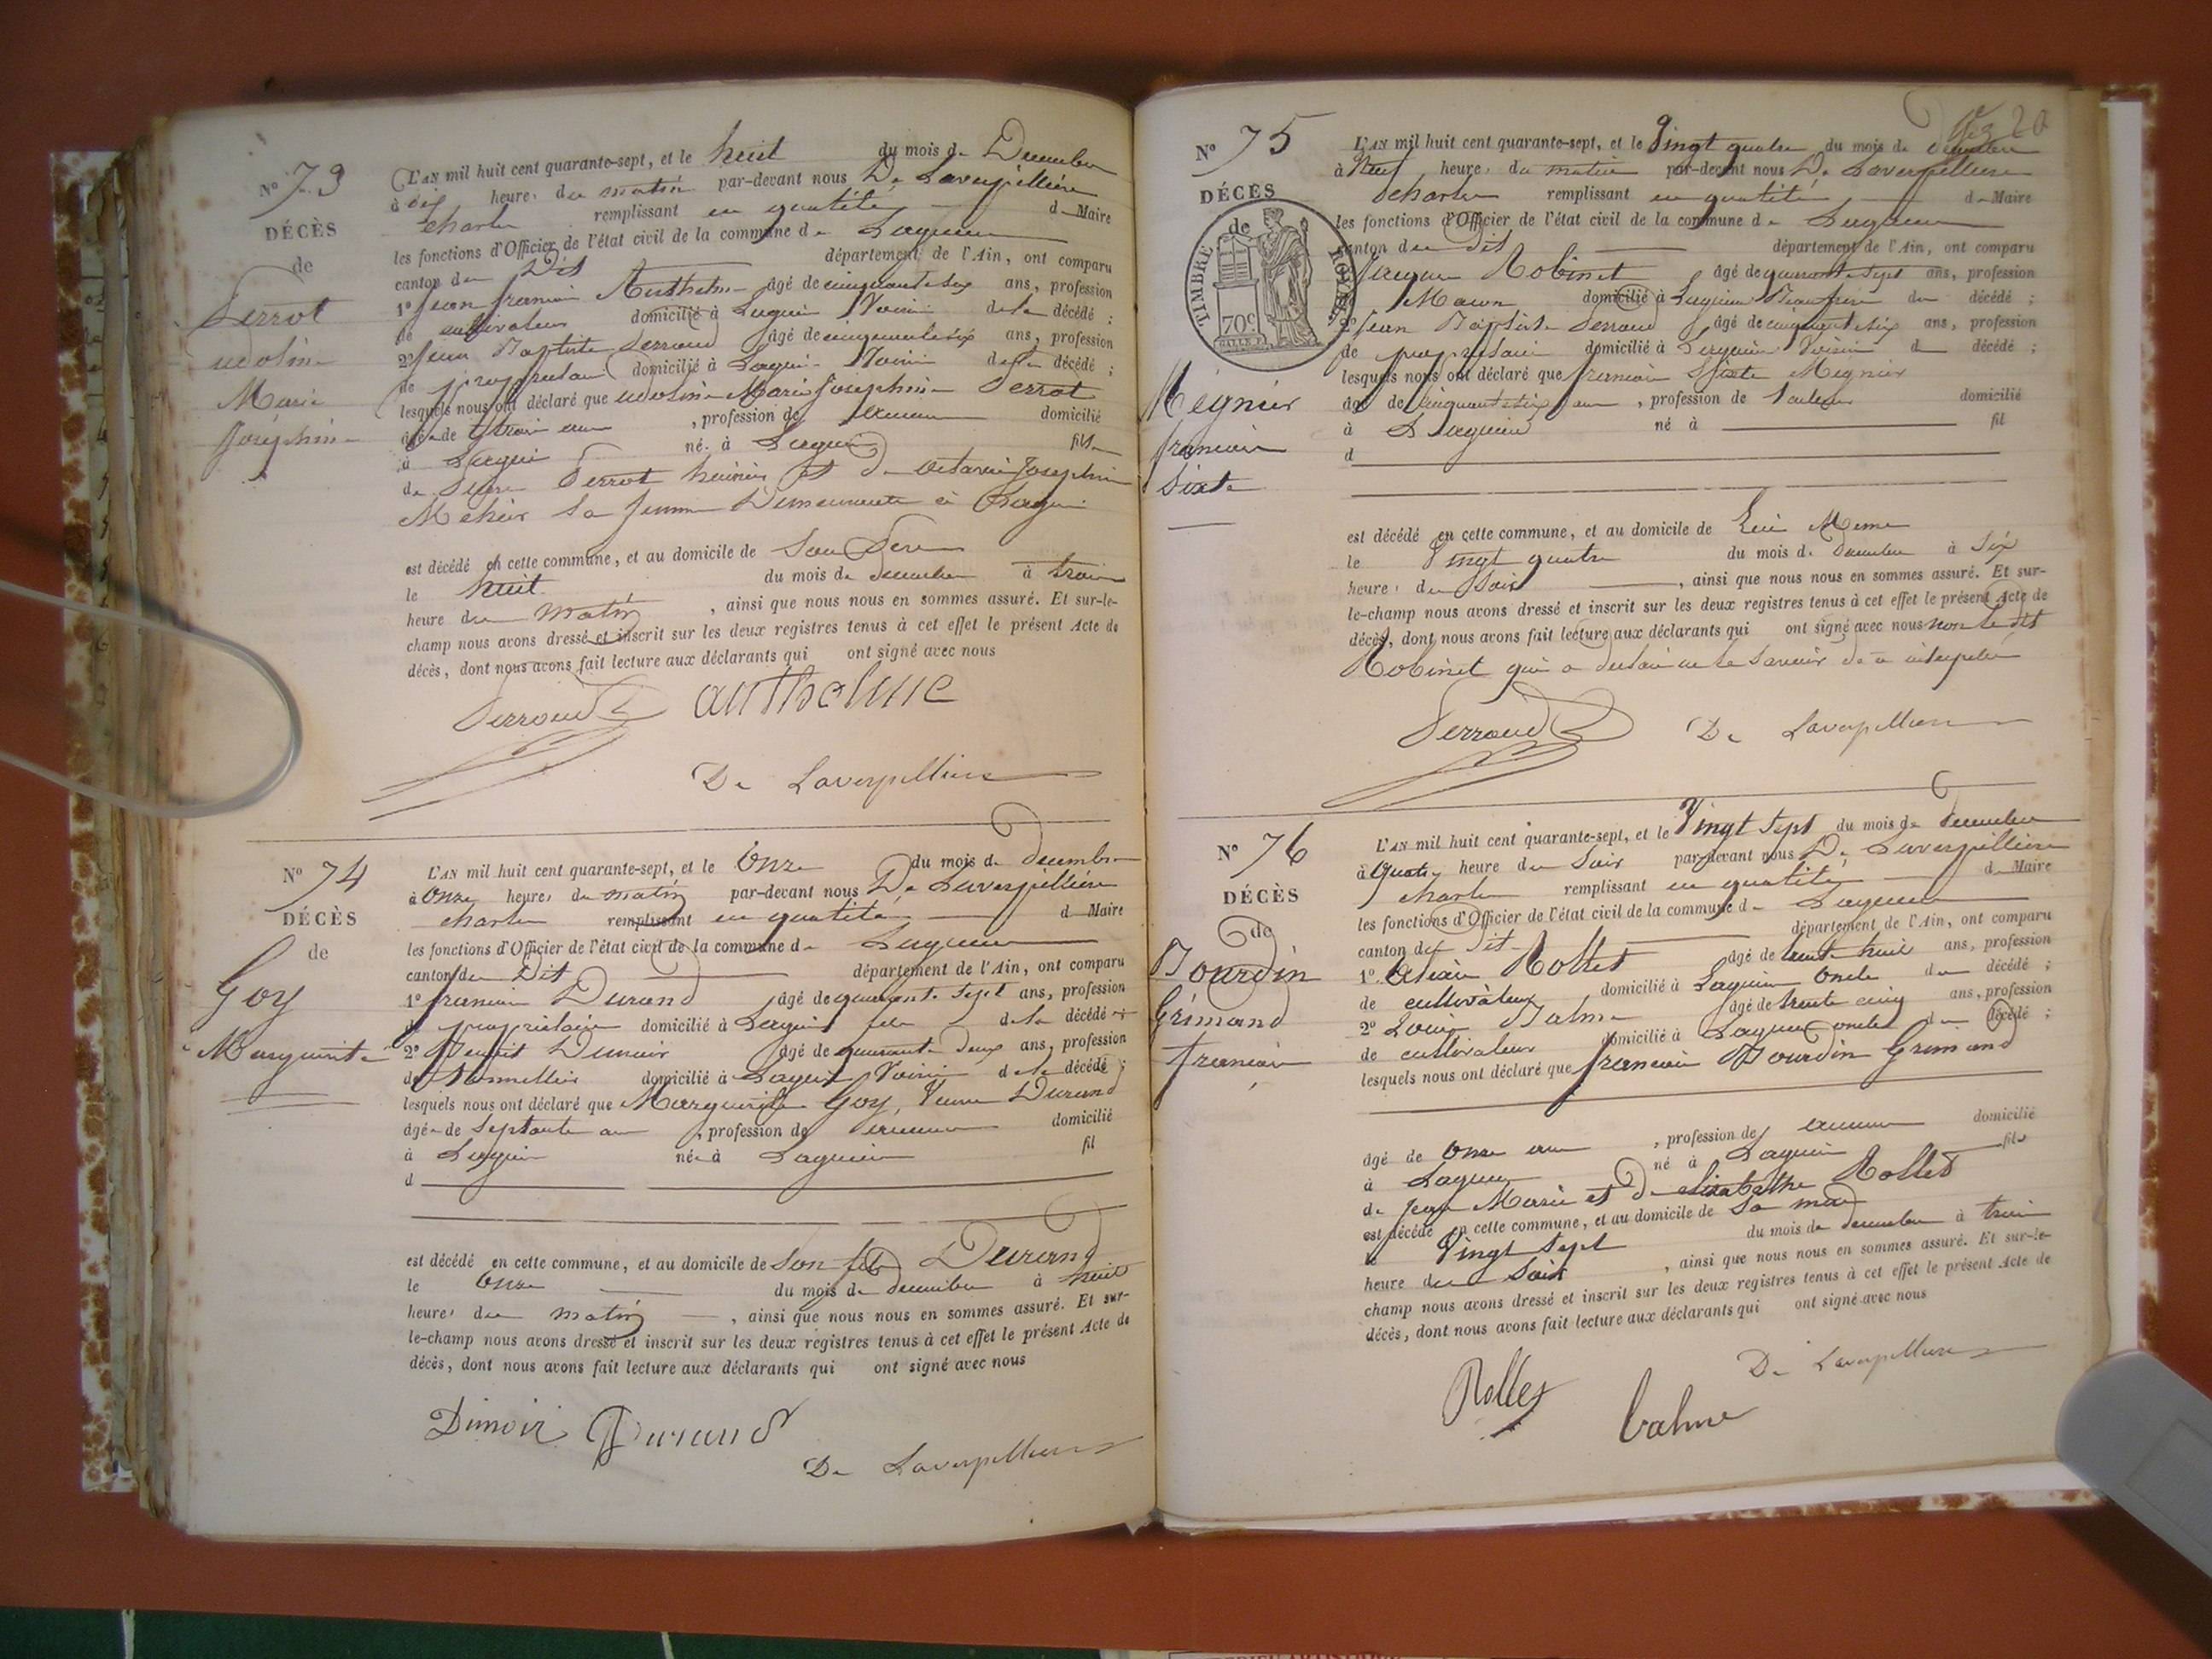 N° 73
DÉCÈS
de
Perrot
Marie
Joséphine
L'AN mil huit cent quarante-sept, et le huit du mois de Decembre
à dix heures du matin par-devant nous De Laverpillière
Charles remplissant en qualité de Maire
les fonctions d'Officier de l'état civil de la commune de Lagnieu
canton du Dit département de l'Ain, ont comparu
1° Jean francois Anthelme âgé de cinquante six ans, profession
de cultivateur domicilié à Lagnieu Voisin de la décédé ;
2° Jean Baptiste Perroud âgé de cinquante six ans, profession
de propriétaire domicilié à Lagnieu Voisin de la décédé ;
lesquels nous ont déclaré que Marie Josephine Perrot
âgée de trois ans , profession de aucune domicilié
à Lagnieu née à Lagnieu fille
de Perrot huissier et de Josephine
sa femme Demeurante à Lagnieu
est décédé en cette commune, et au domicile de Son Pere
le huit du mois de decembre à trois
heure du matin , ainsi que nous nous en sommes assuré. Et sur-le-
champ nous avons dressé et inscrit sur les deux registres tenus à cet effet le présent Acte de
décès, dont nous avons fait lecture aux déclarants qui ont signé avec nous
Perroud anthelme
De Laverpilliere
N° 74
DÉCÈS
de
Goy
Marguerite
L'AN mil huit cent quarante-sept, et le Onze du mois de decembre
à Onze heures du matin par-devant nous De Laverpilliére
charles remplissant en qualité de Maire
les fonctions d'Officier de l'état civil de la commune de Lagnieu
canton du Dit département de l'Ain, ont comparu
1° francois Durand âgé de quarante sept ans, profession
de propriétaire domicilié à Lagnieu fils de la décédé
2° Benoit Dimoir âgé de quarante deux ans, profession
de Tonnellier domicilié à Lagnieu Voisin de la décédé ;
lesquels nous ont déclaré que Marguerite Goy, Veuve Durand
âgée de Septante ans , profession de aucune domicilié
à Lagnieu née à Lagnieu fil
d
est décédé en cette commune, et au domicile de Son fils Durand
le Onze du mois de decembre à huit
heures du matin , ainsi que nous nous en sommes assuré. Et sur-
le-champ nous avons dressé et inscrit sur les deux registres tenus à cet effet le présent Acte de
décès, dont nous avons fait lecture aux déclarants qui ont signé avec nous
Dimoir Durand
De Laverpilliere
20
N° 75
DÉCÈS
de
TIMBRE ROYAL
70c
Mégnier
francois
Sixte
L'AN mil huit cent quarante-sept, et le Vingt quatre du mois de decembre
à Neuf heures du matin par-devant nous De Laverpilliere
Charles remplissant en qualité de Maire
les fonctions d'Officier de l'état civil de la commune de Lagnieu
canton du Dit département de l'Ain, ont comparu
Jacques Robinet âgé de quarante sept ans, profession
Macon domicilié à Lagnieu Beau frere du décédé ;
2° Jean Baptiste Perroud âgé de cinquante six ans, profession
de propriétaire domicilié à Lagnieu Voisin d décédé ;
lesquels nous ont déclaré que francois Sixte Megnier
âgé de cinquante six ans , profession de domicilié
à Lagnieu né à fil
d
est décédé en cette commune, et au domicile de Lui Meme
le Vingt quatre du mois de decembre à Six
heures du Soir , ainsi que nous nous en sommes assuré. Et sur-
le-champ nous avons dressé et inscrit sur les deux registres tenus à cet effet le présent Acte de
décès, dont nous avons fait lecture aux déclarants qui ont signé avec nous non le dit
Robinet qui a declaré ne le Savoir de ce interpellé
Perroud De Laverpilliere
N° 76
DÉCÈS
de
Bourdin
Grimand
francois
L'AN mil huit cent quarante-sept, et le Vingt Sept du mois de decembre
à quatre heure du Soir par-devant nous De Laverpilliere
charles remplissant en qualité de Maire
les fonctions d'Officier de l'état civil de la commune de Lagnieu
canton du dit département de l'Ain, ont comparu
1° Rollet âgé de trente huit ans, profession
de cultivateur domicilié à Lagnieu Oncle du décédé ;
2° Louis Balme âgé de trente cinq ans, profession
de cultivateur domicilié à Lagnieu oncle du décédé ;
lesquels nous ont déclaré que francois Bourdin Grimand
âgé de Onze ans , profession de aucune domicilié
à Lagnieu né à Lagnieu fils
de Jean Marie et d elisabethe Rollet
est décédé en cette commune, et au domicile de Sa mere
le Vingt Sept du mois de decembre à trois
heure du Soir , ainsi que nous nous en sommes assuré. Et sur-le-
champ nous avons dressé et inscrit sur les deux registres tenus à cet effet le présent Acte de
décès, dont nous avons fait lecture aux déclarants qui ont signé avec nous
Rollet balme De Laverpilliere